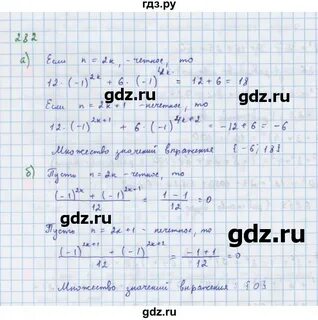 гдз.ру
282
а) Если n = 2k, - четное, то
12·(-1)^2k + 6·(-1)^4k = 12 + 6 = 18
Если n = 2k+1 - нечетное, то
12·(-1)^2k+1 + 6·(-1)^4k+2 = -12 + 6 = -6
Множество значений выражения {-6; 18}
б) Пусть n = 2k - четное, то
(-1)^2k + (-1)^2k+1 / 12 = 1 - 1 / 12 = 0
Пусть n = 2k+1 - нечетное, то
(-1)^2k+1 + (-1)^2k+2 / 12 = -1 + 1 / 12 = 0
Множество значений выражения: {0}
гдз.ру
гдз.ру
гдз.ру
гдз.ру